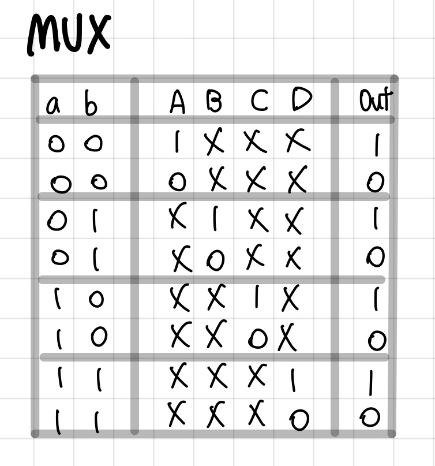 MUX
a b A B C D Out
0 0 1 X X X 1
0 0 0 X X X 0
0 1 X 1 X X 1
0 1 X 0 X X 0
1 0 X X 1 X 1
1 0 X X 0 X 0
1 1 X X X 1 1
1 1 X X X 0 0